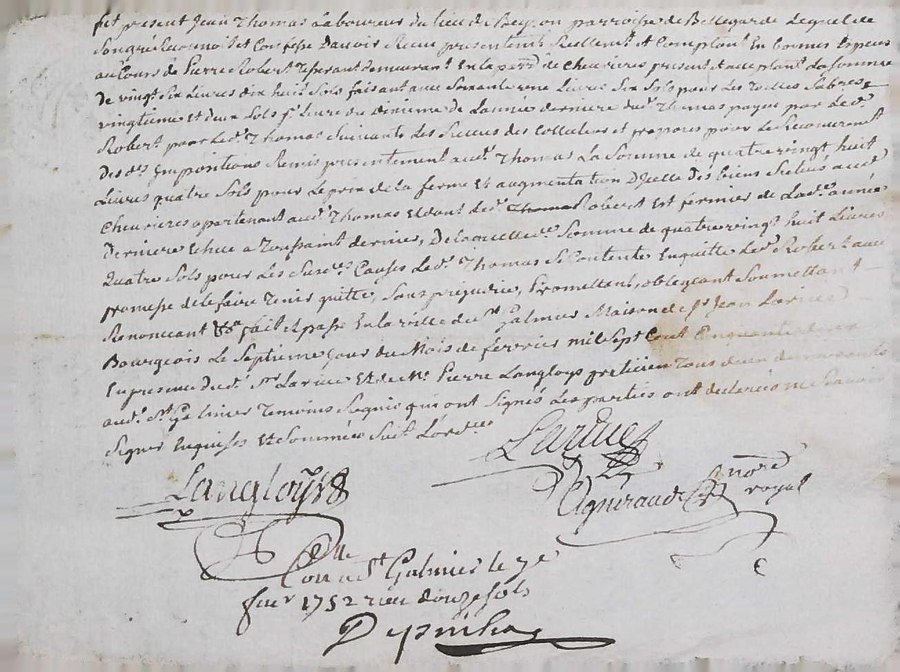 fut present Jean Thomas Laboureur du lieu de Bey, on parroisse de Bellegarde Lequel de
Son gré a reconnu et Confesse D'avoir Receu presentemt Reellemt et Comptant En bonnes Especes
au Cours de Pierre Robert demeurant En la parr. de Chevrieres present et acceptant La Somme
De vingt Six Livres dix huit Sols faisant avec Soixante une Livres Six Sols pour Les
vingtieme et deux Sols pr Livre du dixieme De L'année derniere dud. Thomas payés par Led.
Robert pour Led. Thomas Suivant Les Receus des Collecteurs et preposés pour Le Recouvrement
Desdes Impositions Remis presentement aud. Thomas La Somme de quatre vingt huit
Livres quatre Sols pour Le prix de la ferme Et augmentation D'Icelle Des biens Situés aud.
Chevrieres apartenant aud. Thomas Et dont Led. Robert Est fermier de Lade année
Derniere Echue a Toussaint dernier, De laquelle de Somme de quatre vingt huit Livres
Quatre Sols pour Les Susdes Causes Led. Thomas Se Contente En quitte Led. Robert avec
promesse de le faire tenir quitte, Sans prejudice, Promettant, obligeant Soumettant
Renoncant fait et passé En la ville de St Galmier Maison de Sr Jean Larue
Bourgeois Le Septieme jour du Mois de fevrier mil Sept Cent Cinquante deux
En presence dud. Sr Larue Et de Me Pierre Langloys praticien Tous deux demeurants
aud. St Galmier Temoins Requis qui ont Signés Les parties ont declarés ne Scavoir
Signer Enquises Et Sommées Suivt L'ordce
Larue
Langloys
Agniraud nore
royal
Con a St Galmier le 7e
fevr 1752 reçu douze sols